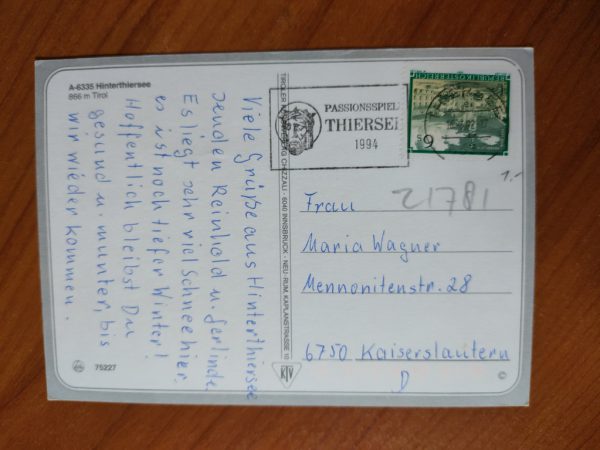 A-6335 Hinterthiersee
866 m Tirol
Viele Grüße aus Hinterthiersee
senden Reinhold u. Gerlinde.
Es liegt sehr viel Schnee hier,
es ist noch tiefer Winter!
Hoffentlich bleibst Du
gesund u. munter, bis
wir wieder kommen.
75227
CHIZZALI - 6040 INNSBRUCK - NEU-RUM, KAPLANSTRASSE 10
KTV
PASSIONSSPIEL
THIERSEE
1994
REPUBLIK ÖSTERREICH
S 6
1,-
21781
Frau
Maria Wagner
Mennonitenstr. 28
6750 Kaiserslautern
D